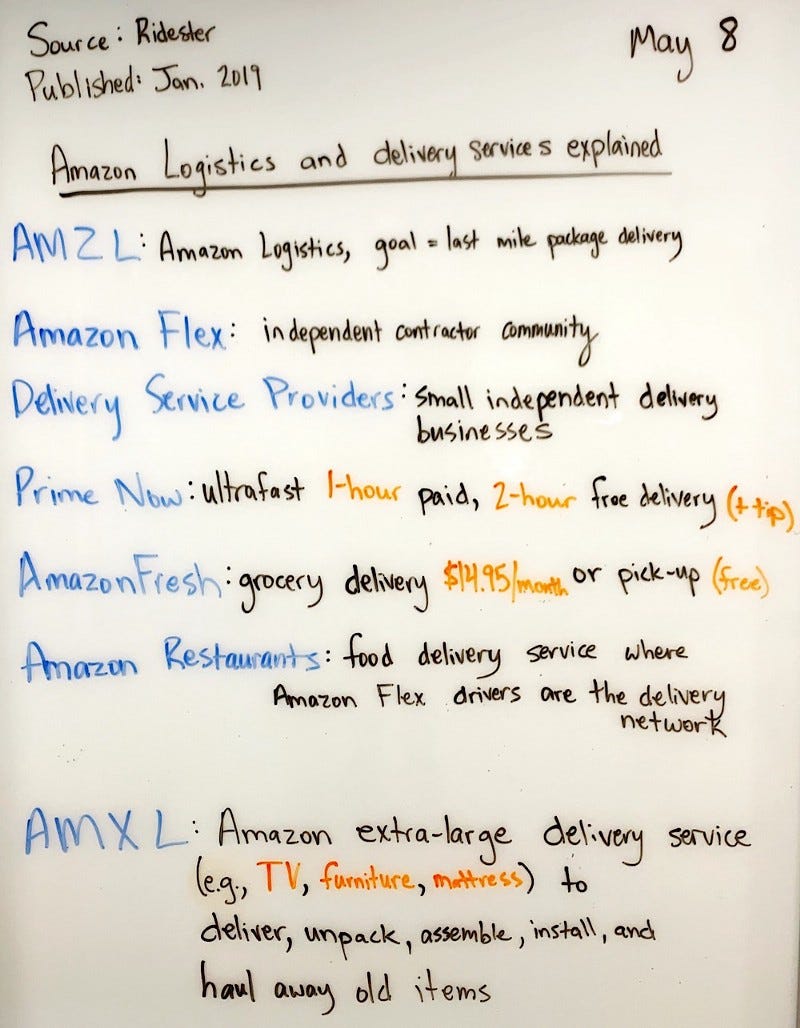 Source: Ridester
May 8
Published: Jan. 2019
Amazon Logistics and delivery services explained
AMZL: Amazon Logistics, goal = last mile package delivery
Amazon Flex: independent contractor community
Delivery Service Providers: small independent delivery
businesses
Prime Now: ultrafast 1-hour paid, 2-hour free delivery (+ tip)
AmazonFresh: grocery delivery $14.95/month or pick-up (free)
Amazon Restaurants: food delivery service where
Amazon Flex drivers are the delivery
network
AMXL: Amazon extra-large delivery service
(e.g., TV, furniture, mattress) to
deliver, unpack, assemble, install, and
haul away old items